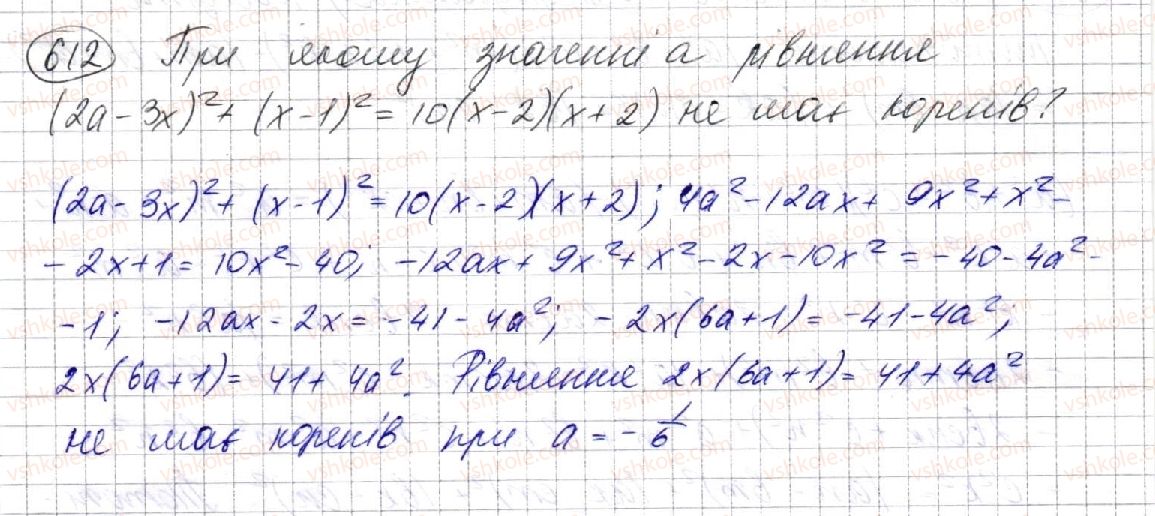 612 При якому значенні a рівняння
(2a-3x)²+(x-1)²=10(x-2)(x+2) не має коренів?
(2a-3x)²+(x-1)²=10(x-2)(x+2); 4a²-12ax+9x²+x²-
-2x+1=10x²-40; -12ax+9x²+x²-2x-10x²=-40-4a²-
-1; -12ax-2x=-41-4a²; -2x(6a+1)=-41-4a²;
2x(6a+1)=41+4a². Рівняння 2x(6a+1)=41+4a²
не має коренів при a=-1/6